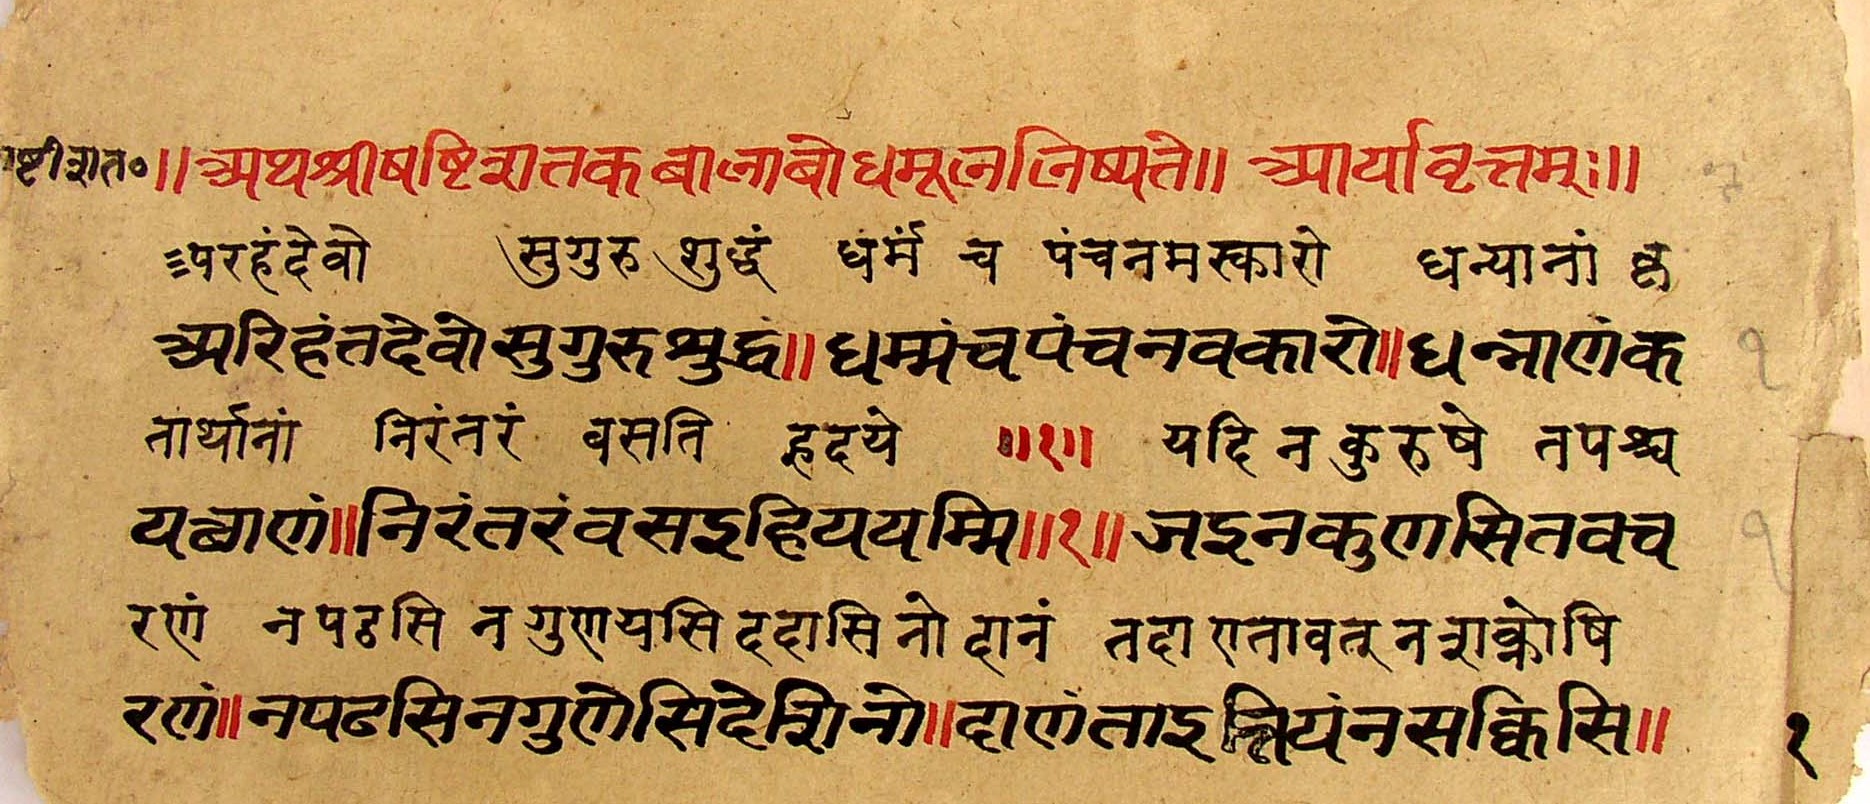 ष्टीशत० ॥ अथ श्रीषष्टिशतकबालाबोधमूल लिष्यते ॥ आर्यावृत्तम्ः ॥
परहंदेवो सुगुरु शुद्धं धर्मं च पंचनमस्कारो धन्यानां कृ
अरिहंतदेवोसुगुरुशुद्धं ॥ धम्मंचपंचनवकारो ॥ धन्नाणंक
तार्थानां निरंतरं वसति हृदये ॥१॥ यदि न कुरुषे तपश्च
यच्चाणं ॥ निरंतरंवसइहिययम्मि ॥१॥ जइनकुणसितवच
रणं न पठसि न गुणयसि ददासि नो दानं तदा एतावत् न शक्नोषि
रणं ॥ नपढसिनगुणेसिदेशिनो ॥ दाणंताइत्तियंनसक्किसि ॥ १